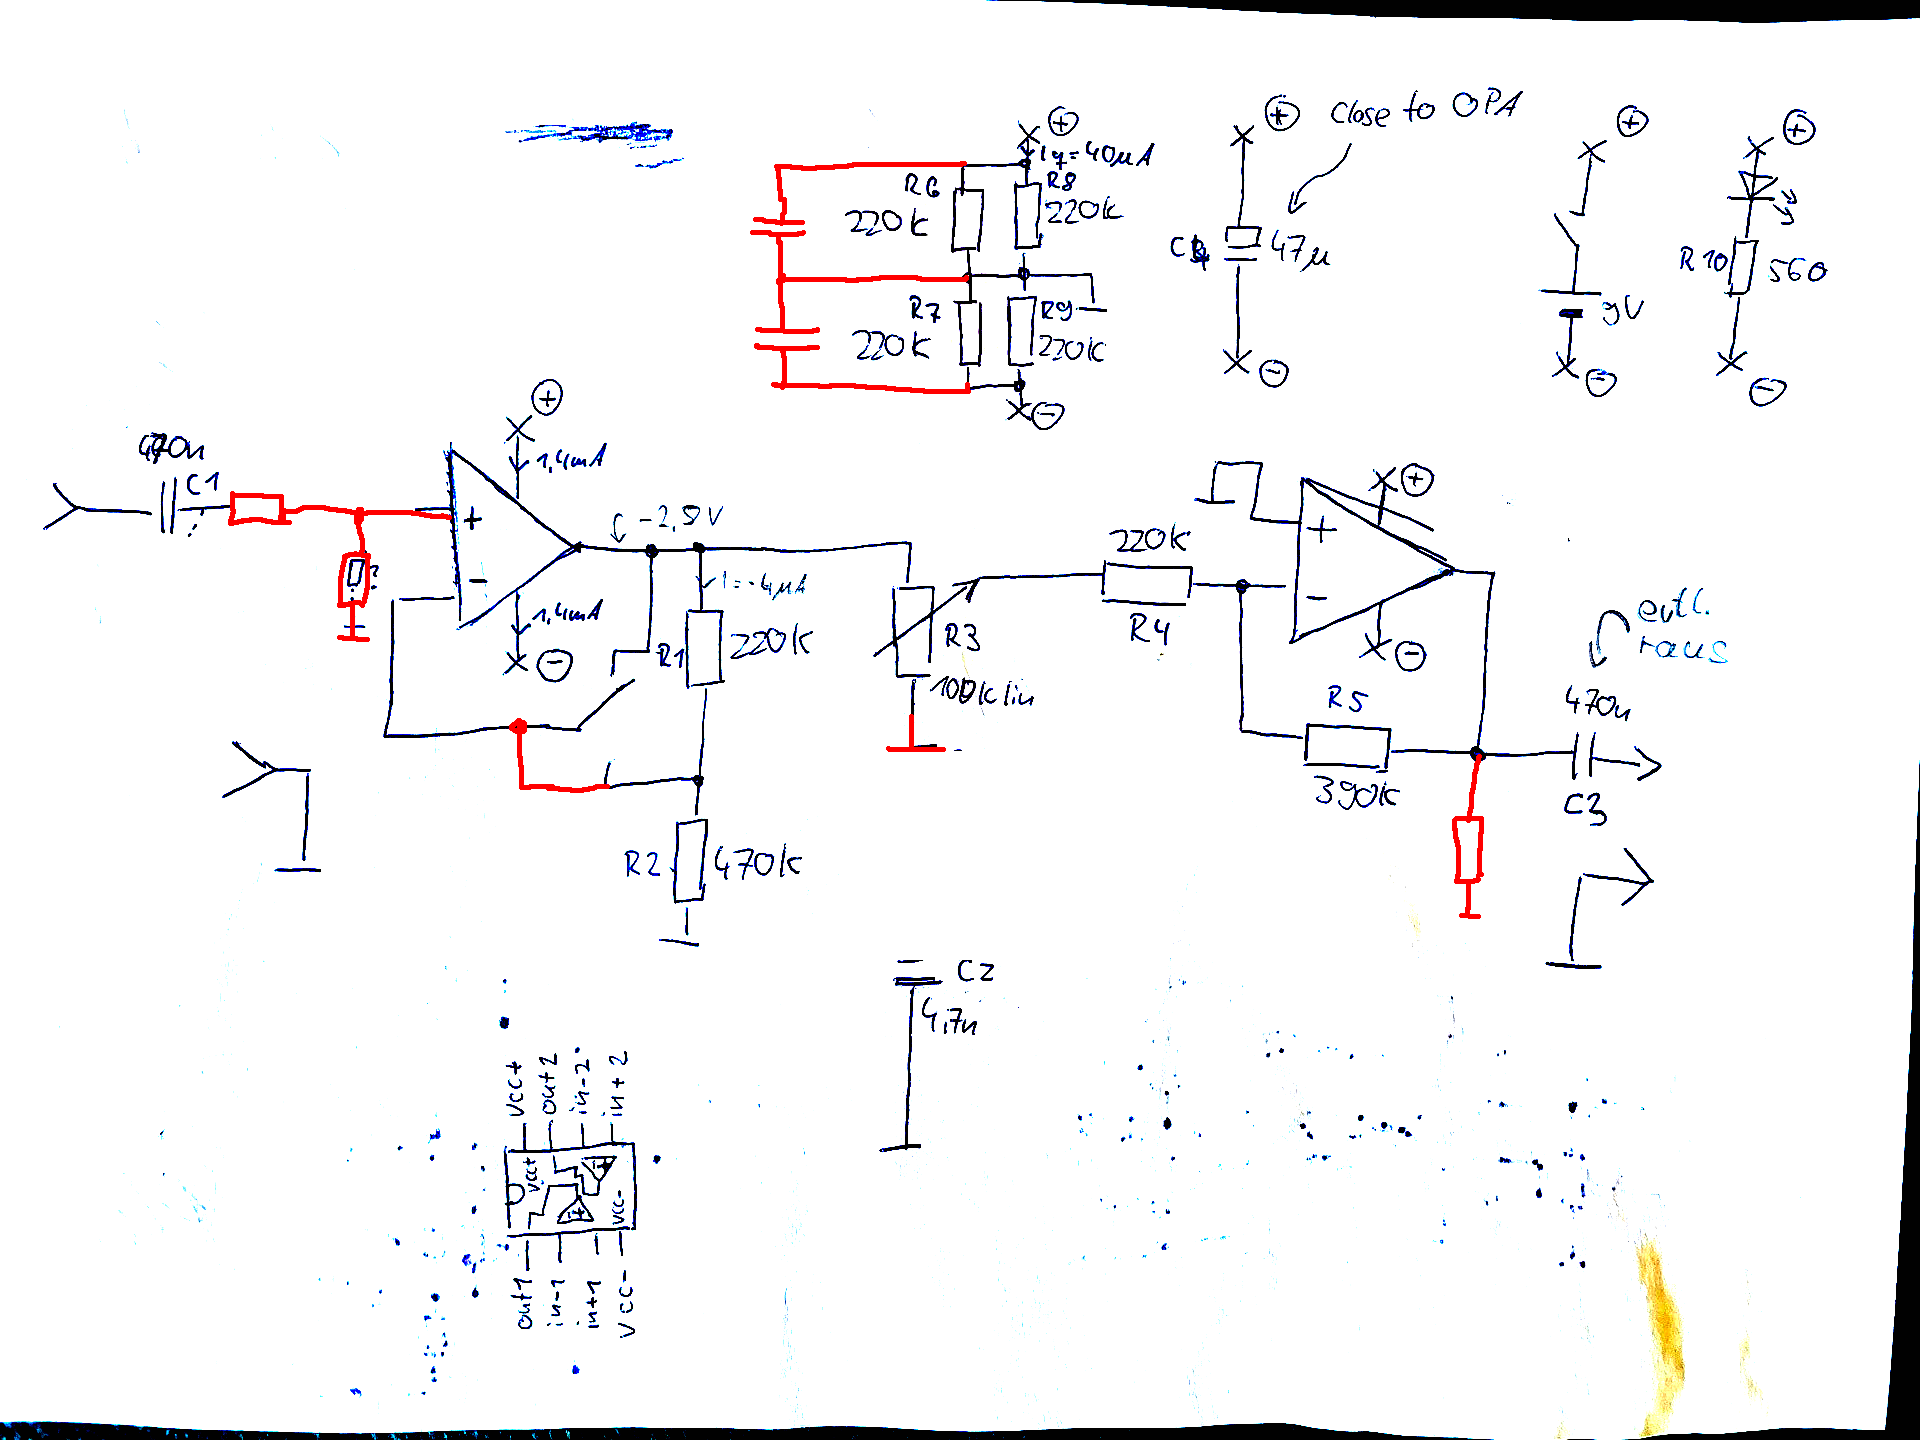 +
Close to OPA
+
+
+
Iq=40µA
R6
220k
R8
220k
C4
47µ
R10
560
R7
220k
R9
220k
9V
-
-
-
-
+
1,4mA
470n
C1
+
-
1,4mA
-
-2,5V
I=-4µA
R1
220k
R3
100k lin
220k
R4
+
+
-
-
evtl.
raus
R5
390k
470n
C3
?
R2
470k
C2
4,7n
VCC+
out2
in-2
in+2
VCC+
VCC-
out1
in-1
in+1
VCC-